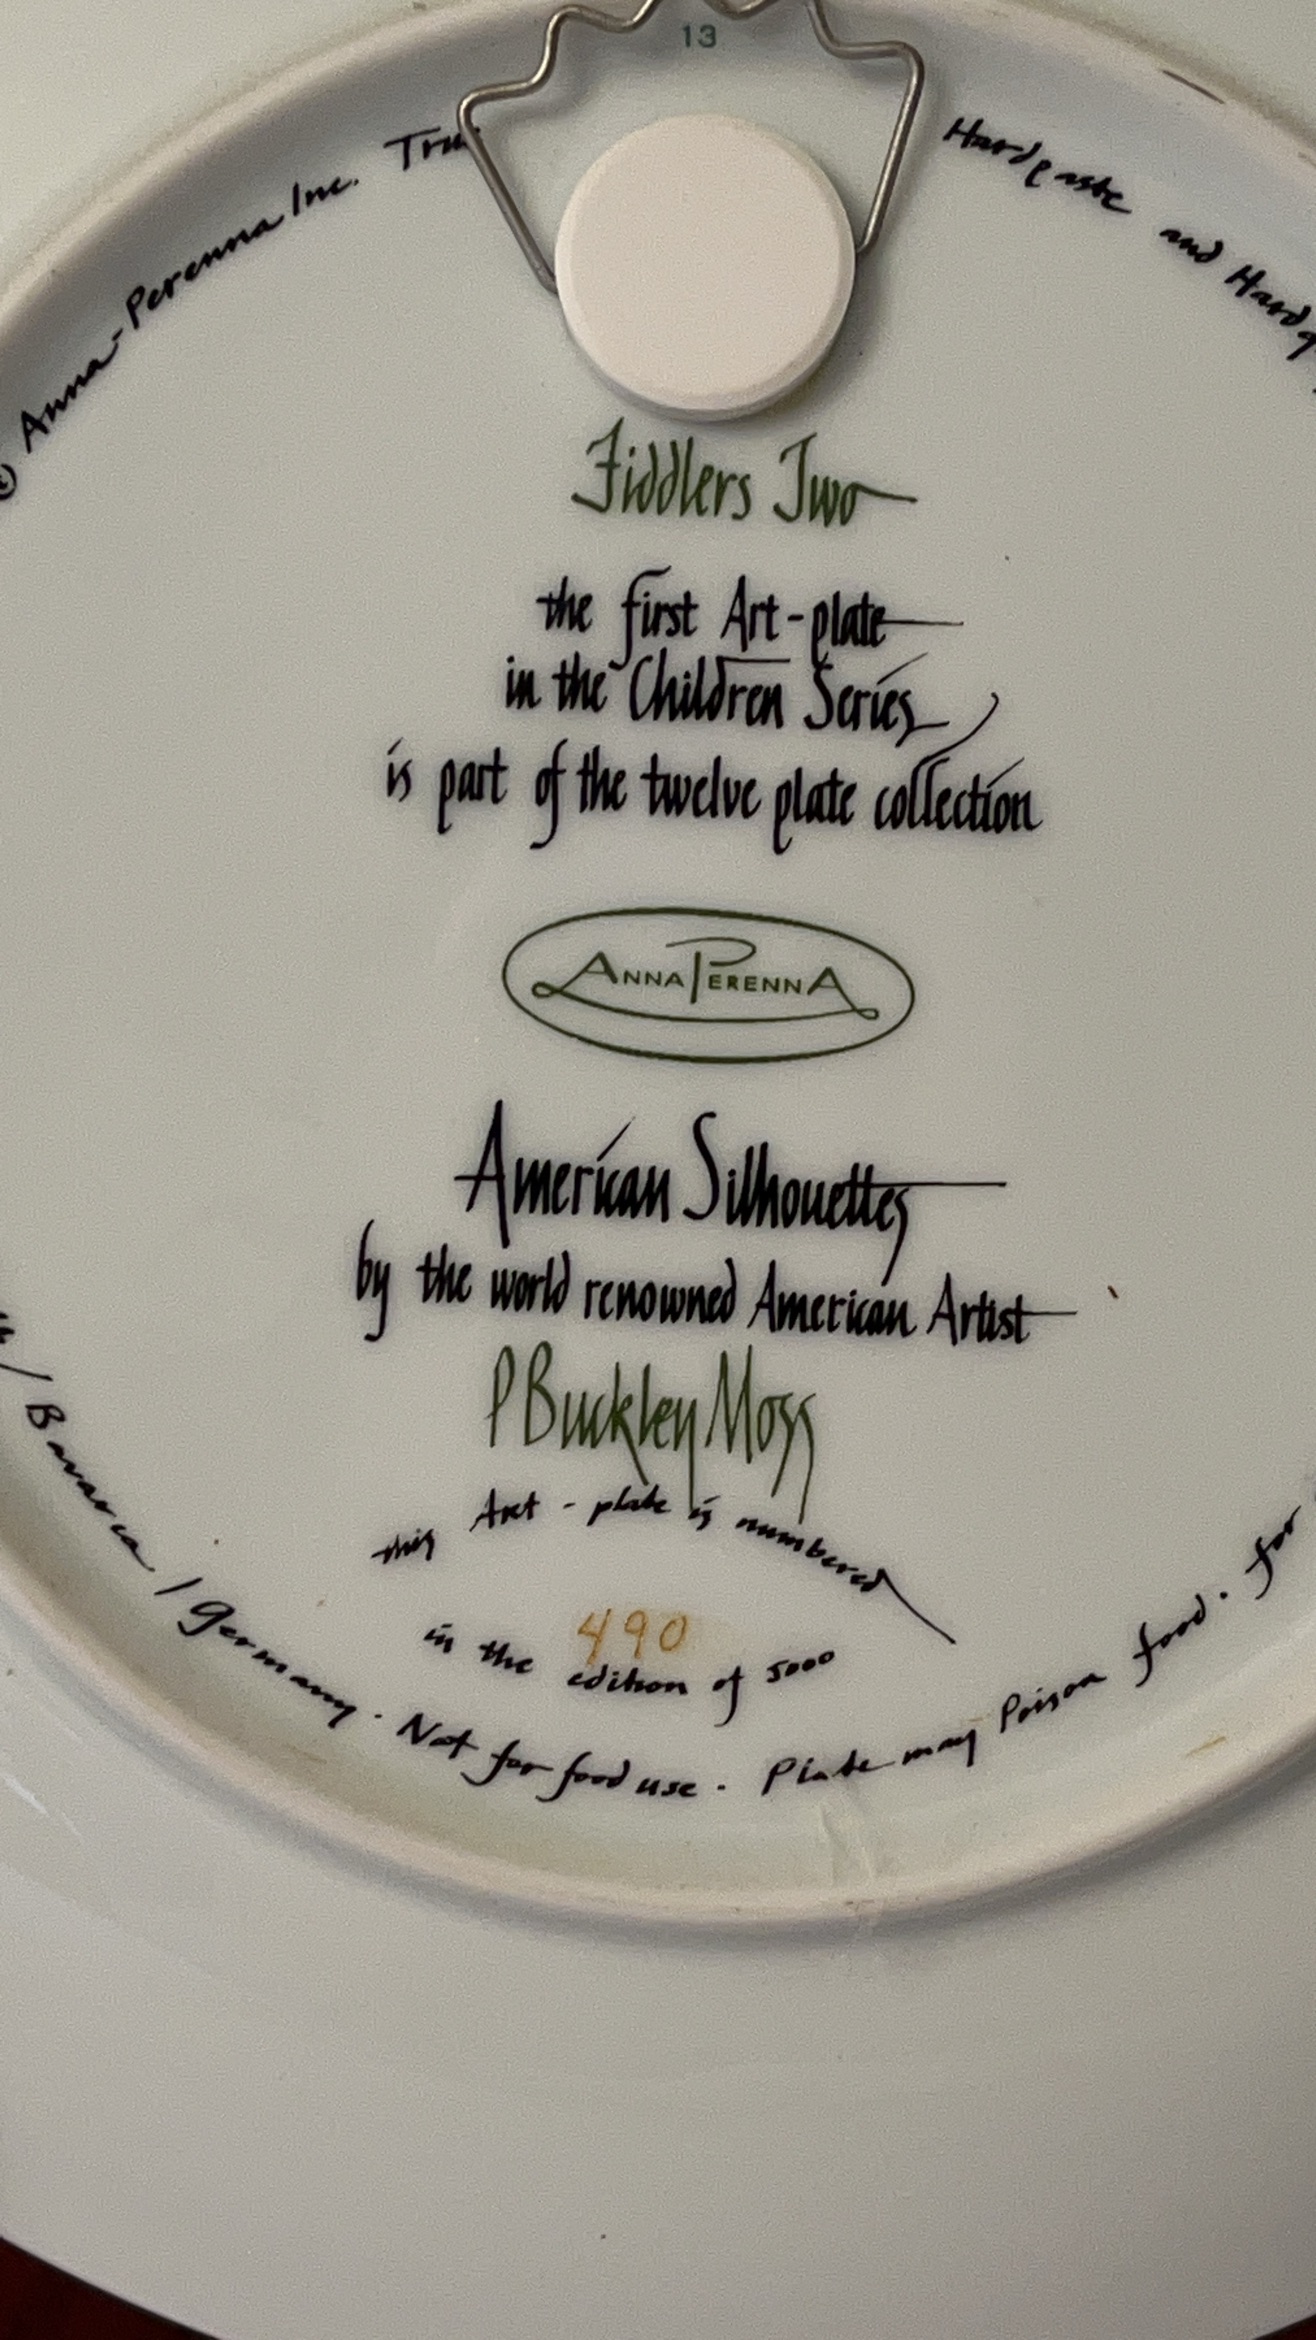 13
© Anna-Perenna Inc. Tru
Hardpaste and Hard
Fiddlers Two
the first Art-plate
in the Children Series
is part of the twelve plate collection
ANNA PERENNA
American Silhouettes
by the world renowned American Artist
P Buckley Moss
this Art-plate is numbered
490
in the edition of 5000
/ Bavaria / Germany. Not for food use. Plate may Poison food. for